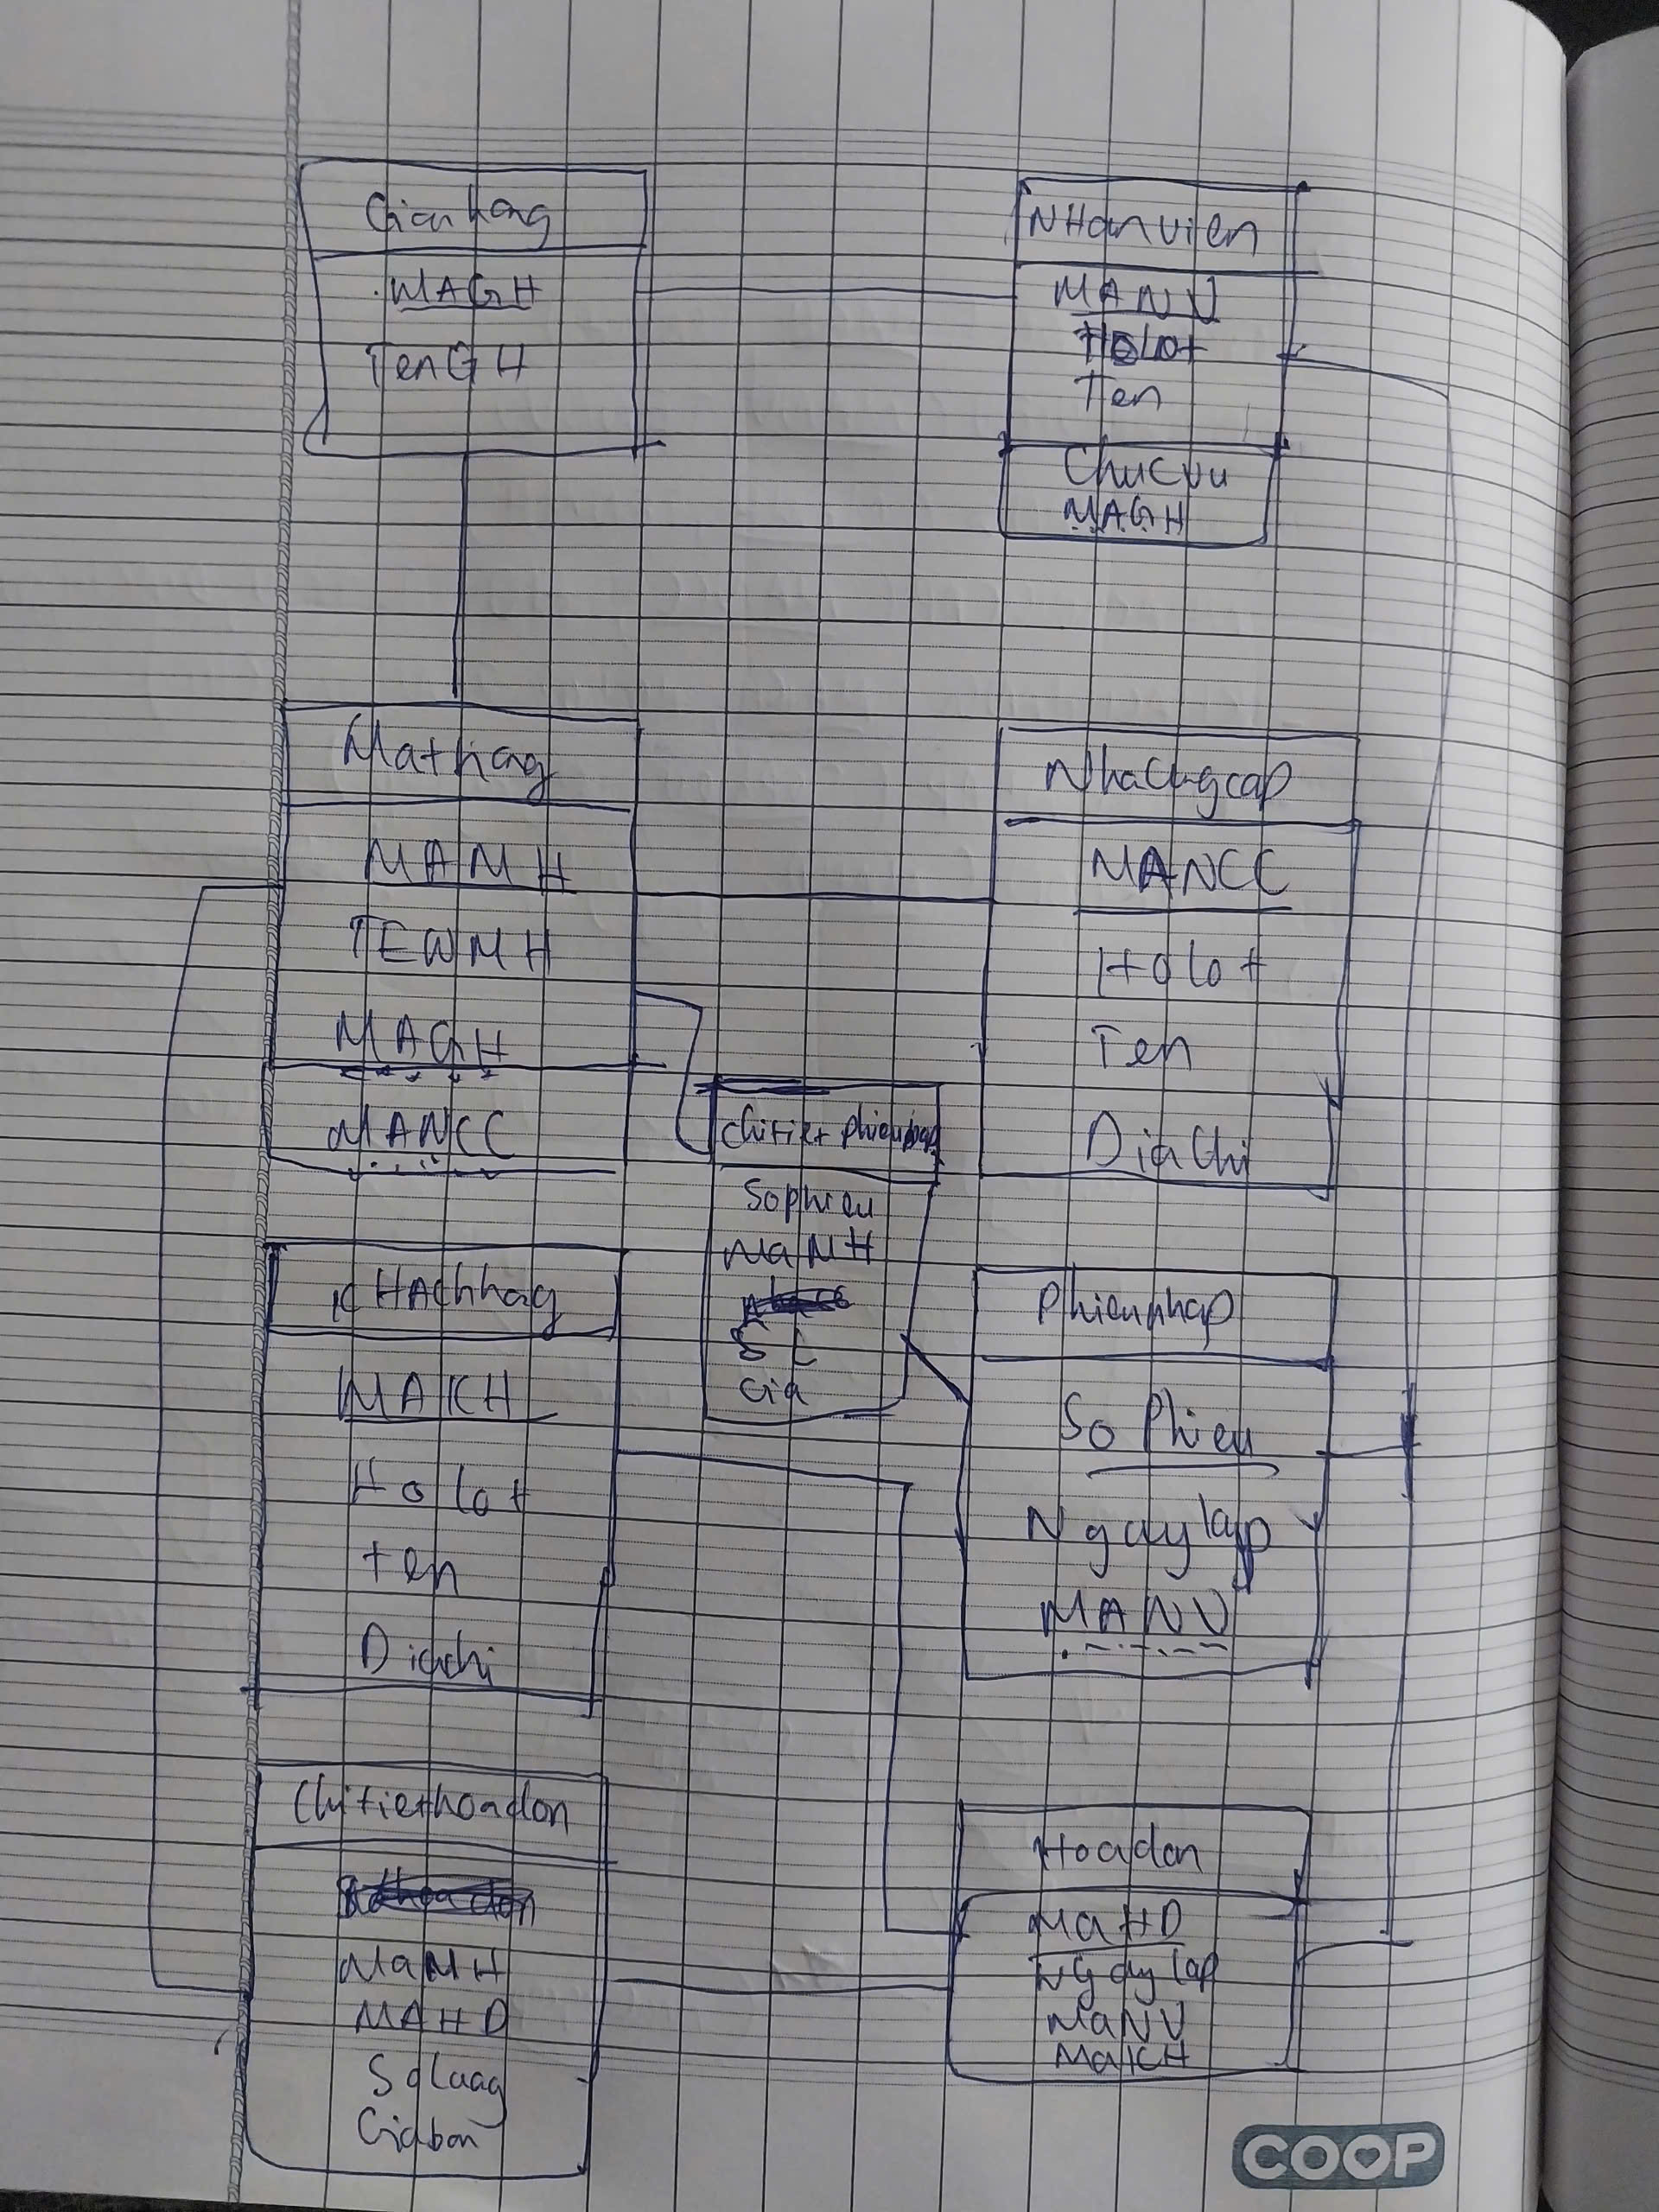 Gianhang
MAGH
TenGH
NHanvien
MANV
HOLOt
Ten
Chucvu
MAGH
Mathag
MAMH
TENMH
MAGH
MANCC
Nhacugcap
MANCC
Holot
Ten
DiaChi
Chitiet phieunhap
Sophieu
MaMH
SL
Gia
KHAchhag
MAKH
Holot
ten
Diachi
Phieunhap
SoPhieu
Ngaylap
MANV
Chitiethoadon
MaMH
MAHD
SoLuag
Giaban
Hoadon
MaHD
NGaylap
MaNV
MaKH
COOP